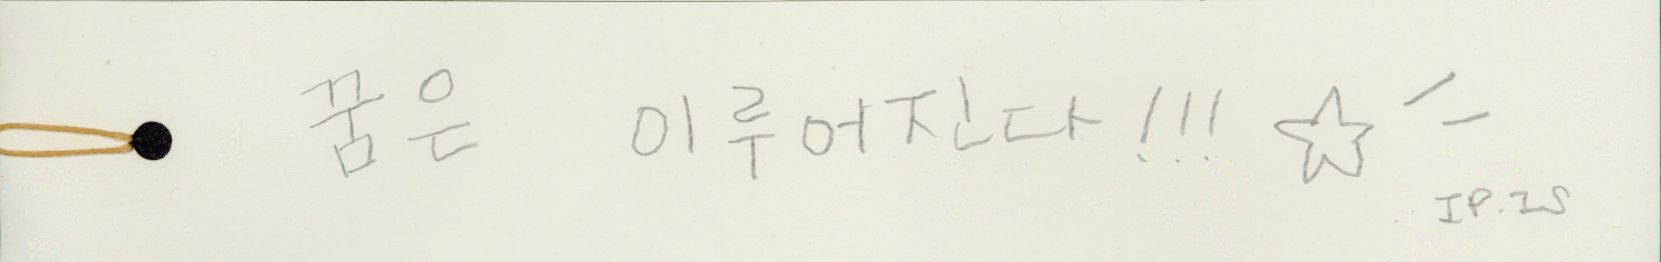 꿈은 이루어진다!!! ☆
IP.IS